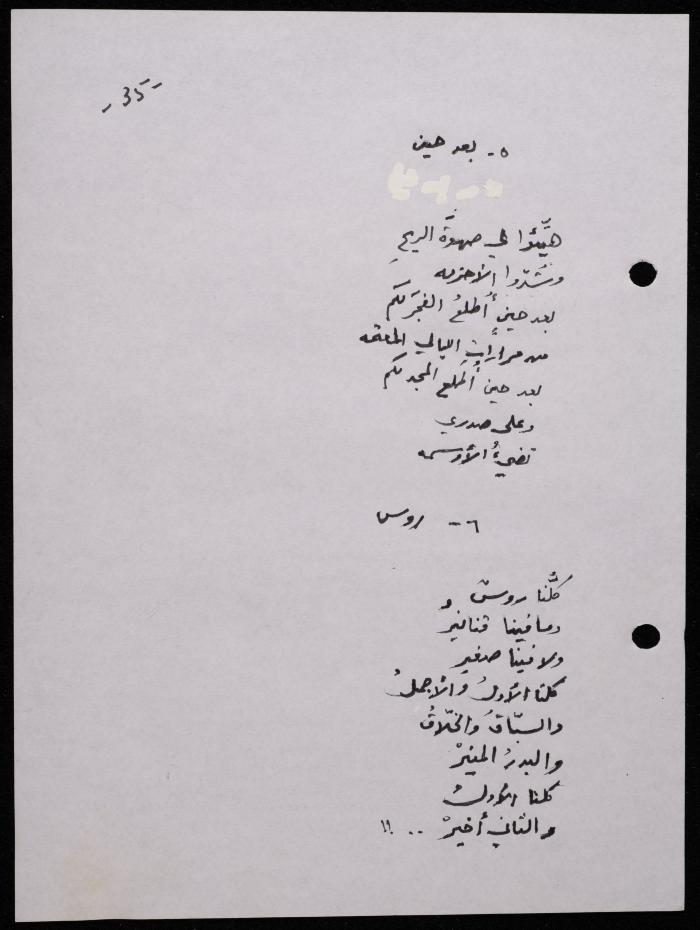 - 35 -
٥- بعد حين
هيِّئوا لي صهوةَ الريحِ
وشُدّوا الأحزمه
بعد حينٍ أُطلعُ الفجرَ لكم
من مراراتِ الليالي المعتمه
بعد حينٍ أُطلع المجد لكم
وعلى صدري
تضيءُ الأوسمه
٦- روس
كلُّنا روسٌ
وما فينا قنانيرُ
ولا فينا صغير
كلنا الأولُ والأجملُ
والسبّاقُ والخلّاقُ
والبدرُ المنيرْ
كلنا الأولُ
والثاني أخيرْ .. !!